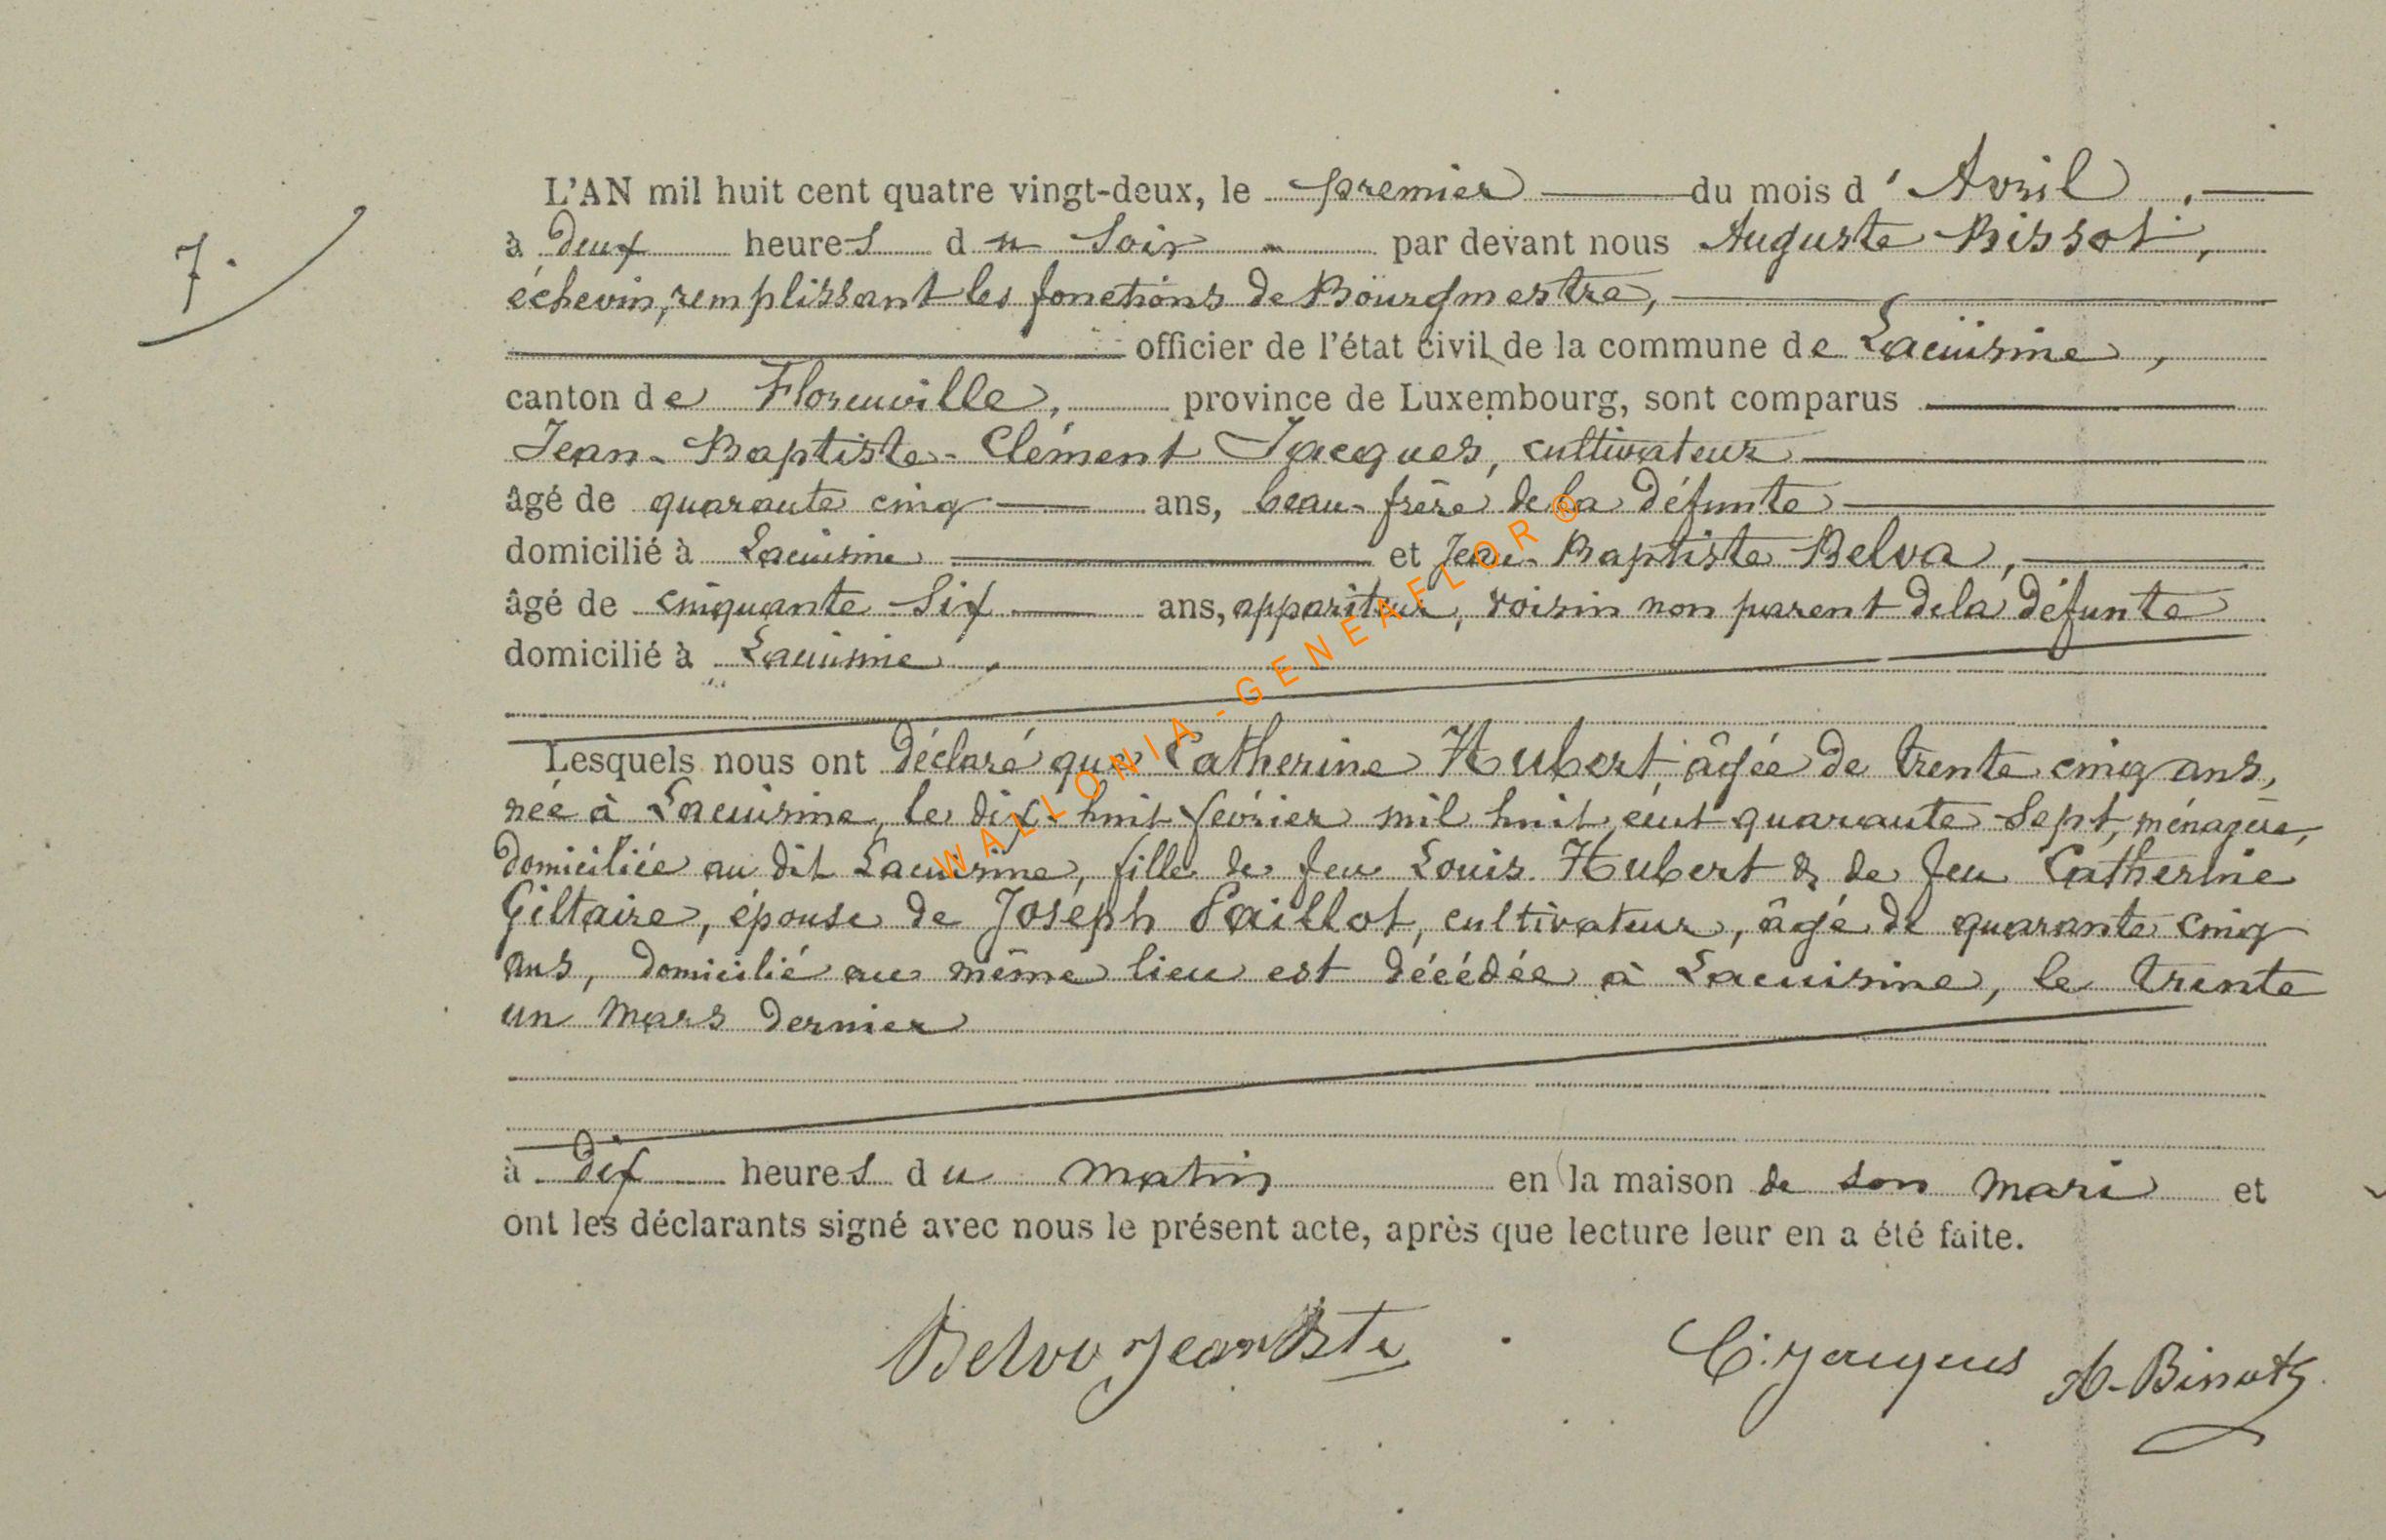 7.
L'AN mil huit cent quatre vingt-deux, le premier du mois d'Avril.
à deux heures du soir par devant nous Auguste Bissot,
échevin, remplissant les fonctions de Bourgmestre,
officier de l'état civil de la commune de Lacuisine,
canton de Florenville, province de Luxembourg, sont comparus
Jean-Baptiste-Clément Jacques, cultivateur
âgé de quarante cinq ans, beau-frère de la défunte
domicilié à Lacuisine et Jean-Baptiste Belva,
âgé de cinquante six ans, appariteur, voisin non parent de la défunte
domicilié à Lacuisine.
Lesquels nous ont déclaré que Catherine Hubert, âgée de trente cinq ans,
née à Lacuisine, le dix-huit février mil huit cent quarante sept, ménagère,
domiciliée au dit Lacuisine, fille de feu Louis Hubert & de feu Catherine
Giltaire, épouse de Joseph Paillot, cultivateur, âgé de quarante cinq
ans, domicilié au même lieu est décédée à Lacuisine, le trente
un mars dernier
à dix heures du matin en la maison de son mari et
ont les déclarants signé avec nous le présent acte, après que lecture leur en a été faite.
Belva Jean Bte C. Jacques A. Bissot
WALLONIA-GENEAFLOR®